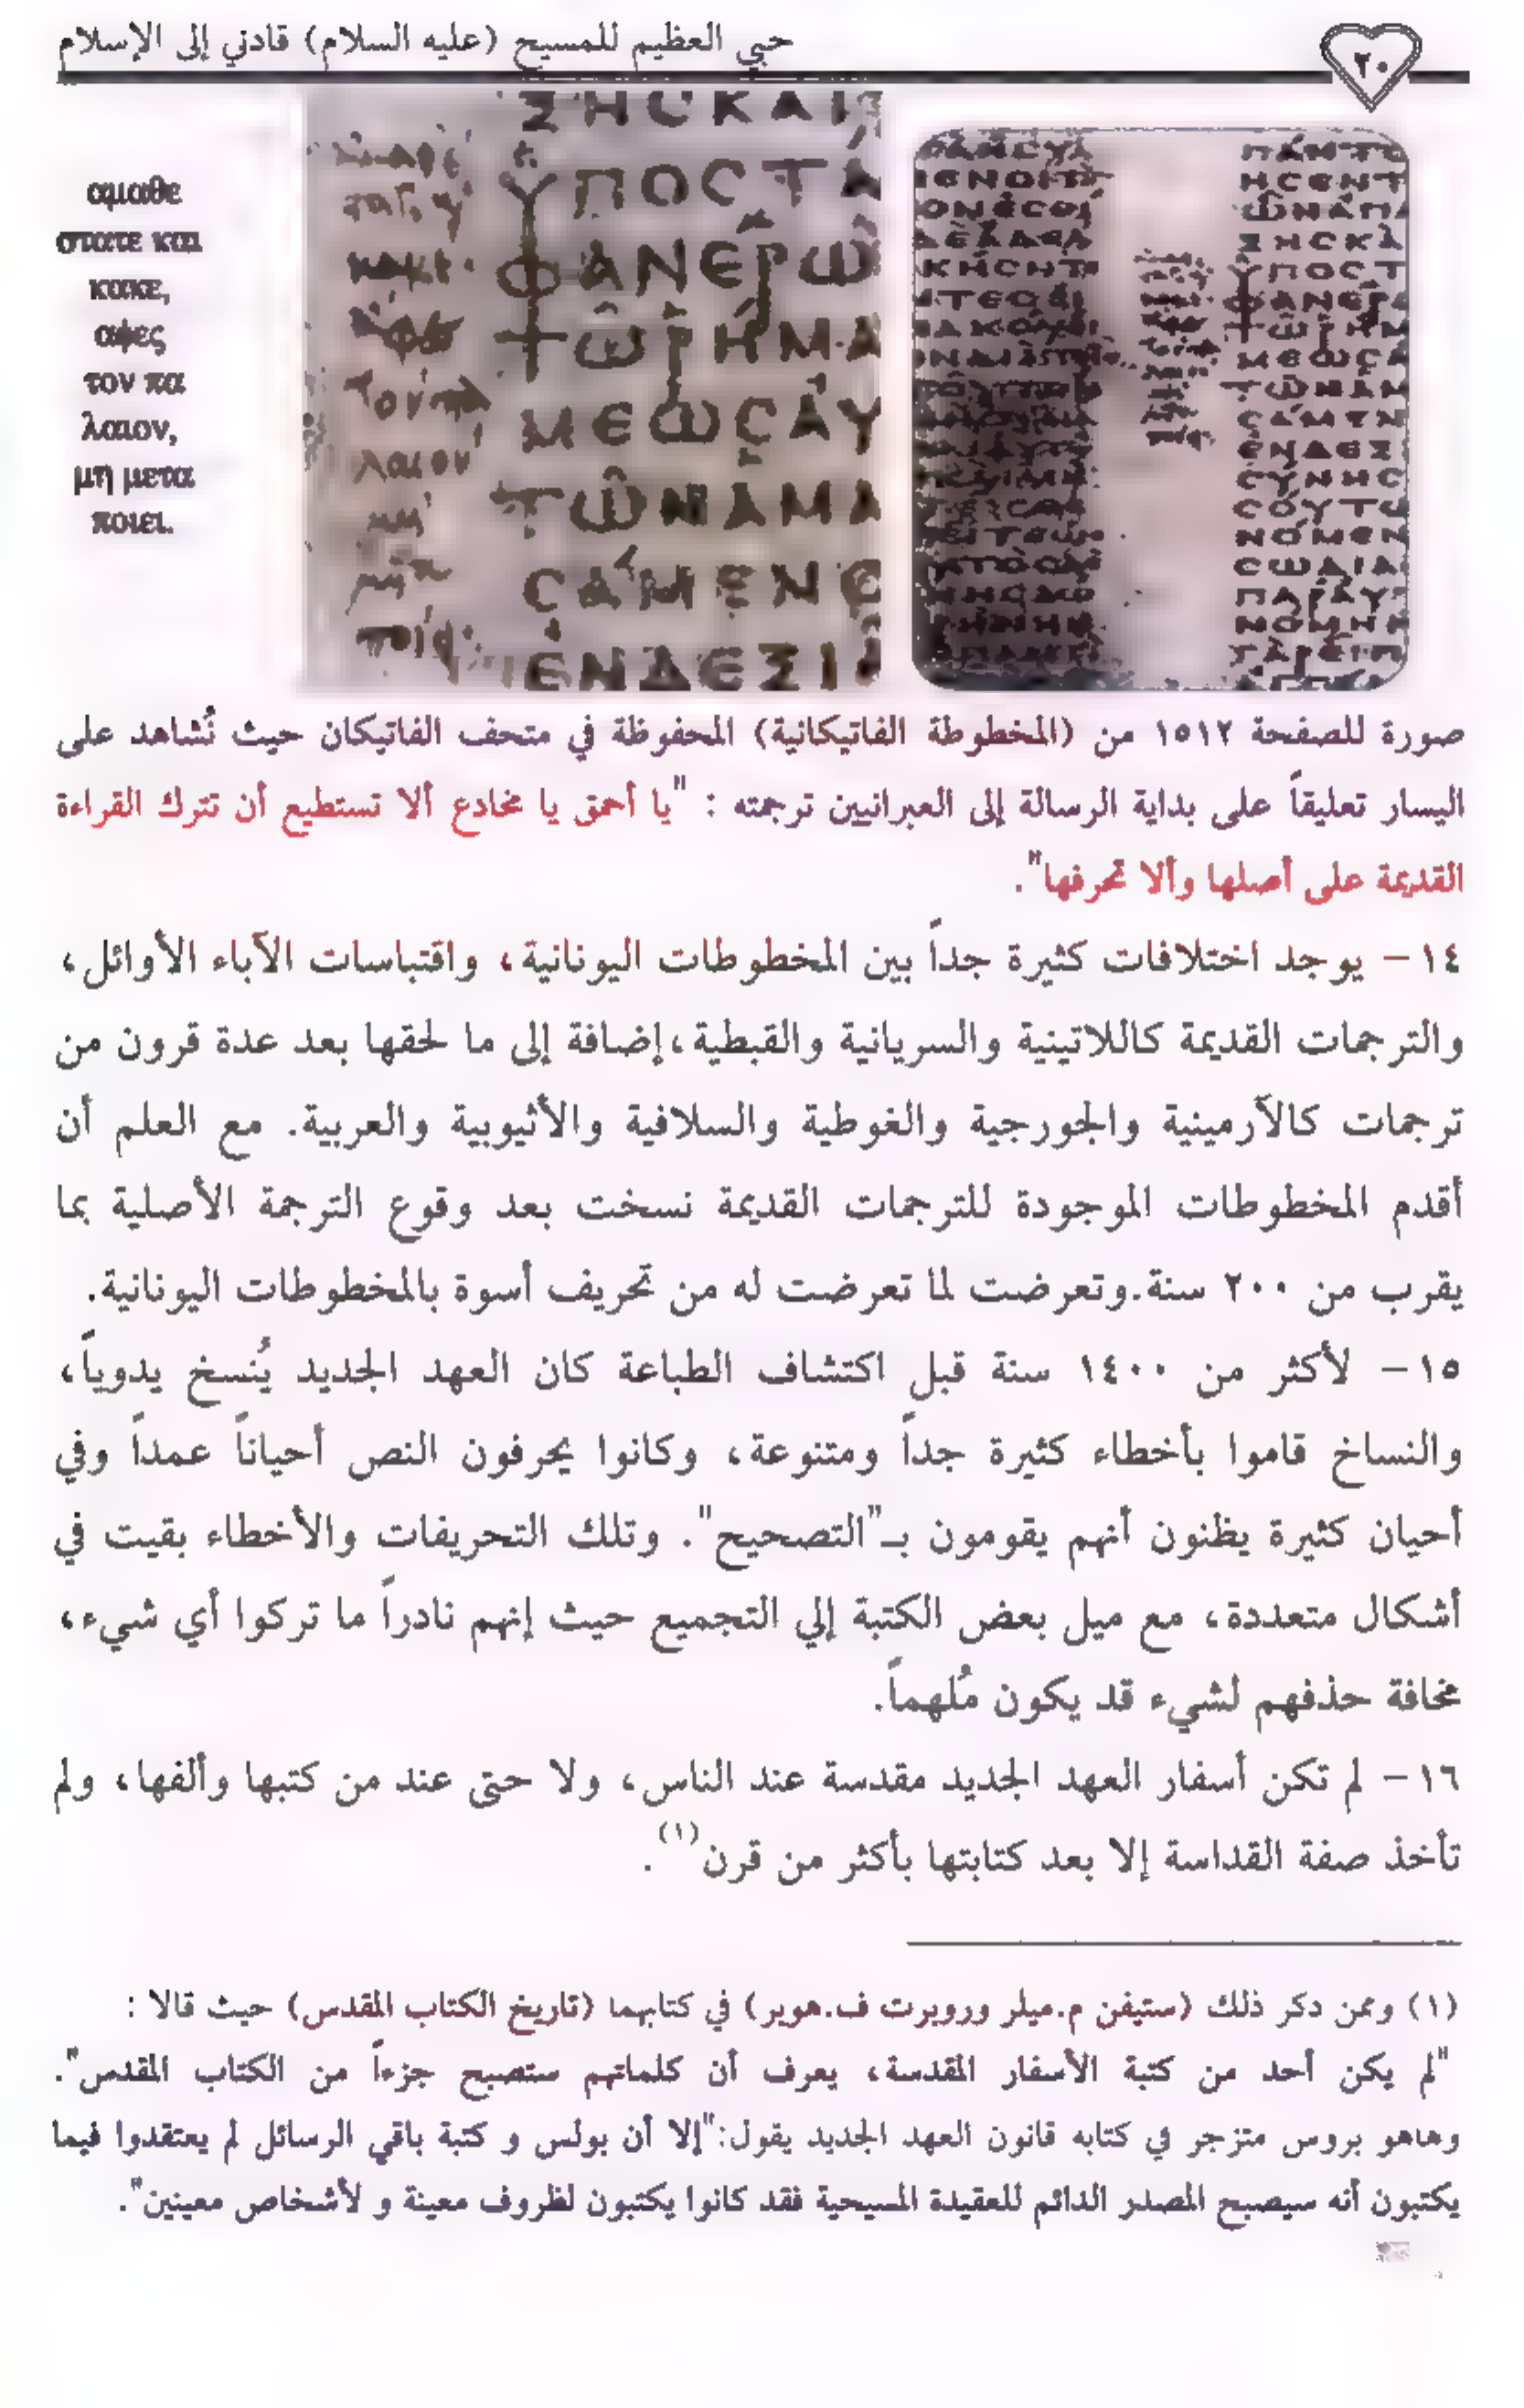 حبي العظيم للمسيح (عليه السلام) قادني إلى الإسلام
٢٠
αμαθε
στατε και
κακε,
αφες
τον πα
λαιον,
μη μετα
ποιει.
ΣΗCΚΑΙ
ΥΠΟCΤΑ
ΦΑΝΕΡΩ
ΤΩΡΗΜΑ
ΜΕΩCΑΥ
ΤΩΝΑΜΑ
CΑΜΕΝΟ
ΕΝΔΕΞΙΑ
صورة للصفحة ١٥١٢ من (المخطوطة الفاتيكانية) المحفوظة في متحف الفاتيكان حيث نُشاهد على
اليسار تعليقاً على بداية الرسالة إلى العبرانيين ترجمته : "يا أحمق يا مخادع ألا تستطيع أن تترك القراءة
القديمة على أصلها وألا تحرفها".
١٤ – يوجد اختلافات كثيرة جداً بين المخطوطات اليونانية، واقتباسات الآباء الأوائل،
والترجمات القديمة كاللاتينية والسريانية والقبطية،إضافة إلى ما لحقها بعد عدة قرون من
ترجمات كالآرمينية والجورجية والغوطية والسلافية والأثيوبية والعربية. مع العلم أن
أقدم المخطوطات الموجودة للترجمات القديمة نسخت بعد وقوع الترجمة الأصلية بما
يقرب من ٢٠٠ سنة.وتعرضت لما تعرضت له من تحريف أسوة بالمخطوطات اليونانية.
١٥ – لأكثر من ١٤٠٠ سنة قبل اكتشاف الطباعة كان العهد الجديد يُنسخ يدوياً،
والنساخ قاموا بأخطاء كثيرة جداً ومتنوعة، وكانوا يحرفون النص أحياناً عمداً وفي
أحيان كثيرة يظنون أنهم يقومون بـ"التصحيح". وتلك التحريفات والأخطاء بقيت في
أشكال متعددة، مع ميل بعض الكتبة إلي التجميع حيث إنهم نادراً ما تركوا أي شيء،
مخافة حذفهم لشيء قد يكون مُلهماً.
١٦ – لم تكن أسفار العهد الجديد مقدسة عند الناس، ولا حتى عند من كتبها وألفها، ولم
تأخذ صفة القداسة إلا بعد كتابتها بأكثر من قرن(١).
(١) وممن دكر ذلك (ستيفن م.ميلر وروبرت ف.هوير) في كتابهما (تاريخ الكتاب المقدس) حيث قالا :
"لم يكن أحد من كتبة الأسفار المقدسة، يعرف أن كلماتهم ستصبح جزءاً من الكتاب المقدس".
وهاهو بروس متزجر في كتابه قانون العهد الجديد يقول:"إلا أن بولس و كتبة باقي الرسائل لم يعتقدوا فيما
يكتبون أنه سيصبح المصدر الدائم للعقيدة المسيحية فقد كانوا يكتبون لظروف معينة و لأشخاص معينين".